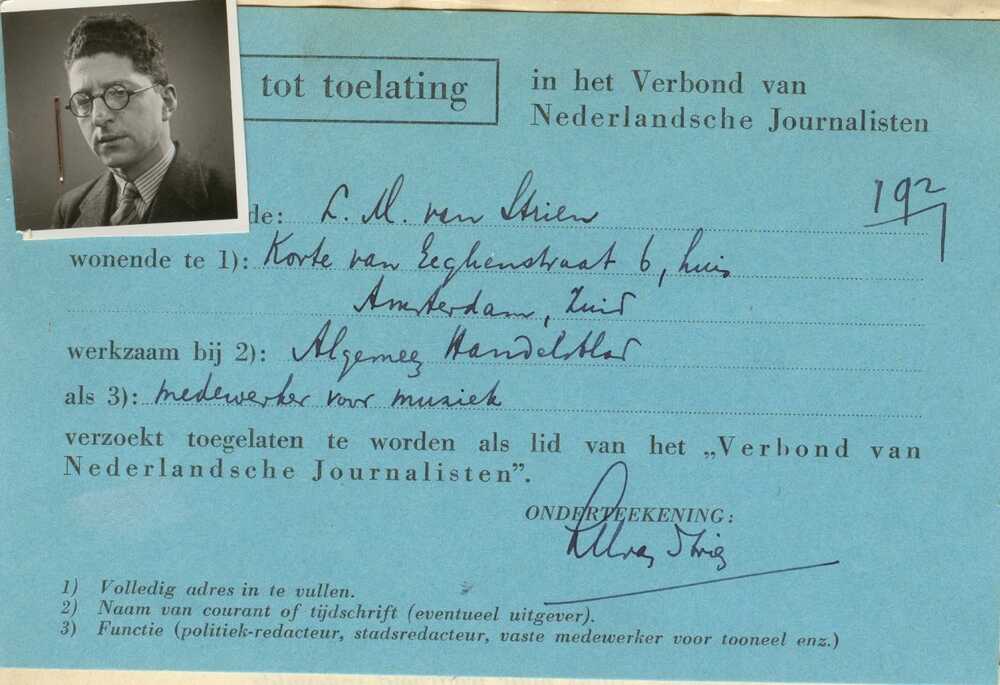 tot toelating
in het Verbond van
Nederlandsche Journalisten
de: L. M. van Strien
192
wonende te 1): Korte van Eeghenstraat 6, huis
Amsterdam, Zuid
werkzaam bij 2): Algemeen Handelsblad
als 3): medewerker voor muziek
verzoekt toegelaten te worden als lid van het „Verbond van
Nederlandsche Journalisten”.
ONDERTEEKENING:
LMvan Strien
1) Volledig adres in te vullen.
2) Naam van courant of tijdschrift (eventueel uitgever).
3) Functie (politiek-redacteur, stadsredacteur, vaste medewerker voor tooneel enz.)